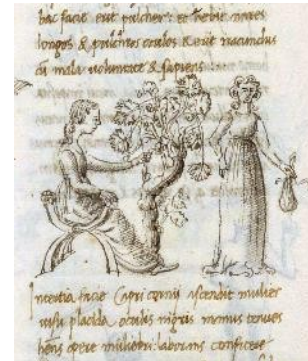 hac facie erit pulcher: et hebit mores
longos & pulchros oculos & erit iracundus
cū mala voluntate & sapiens.
n tertia facie Capricorni ascendit mulier
visu placida oculis nigris manus tenues
hens opere muliebri laborans conficere